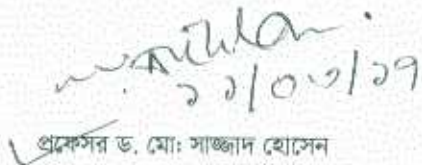 ১১/০৩/১৭
প্রফেসর ড. মো: সাজ্জাদ হোসেন